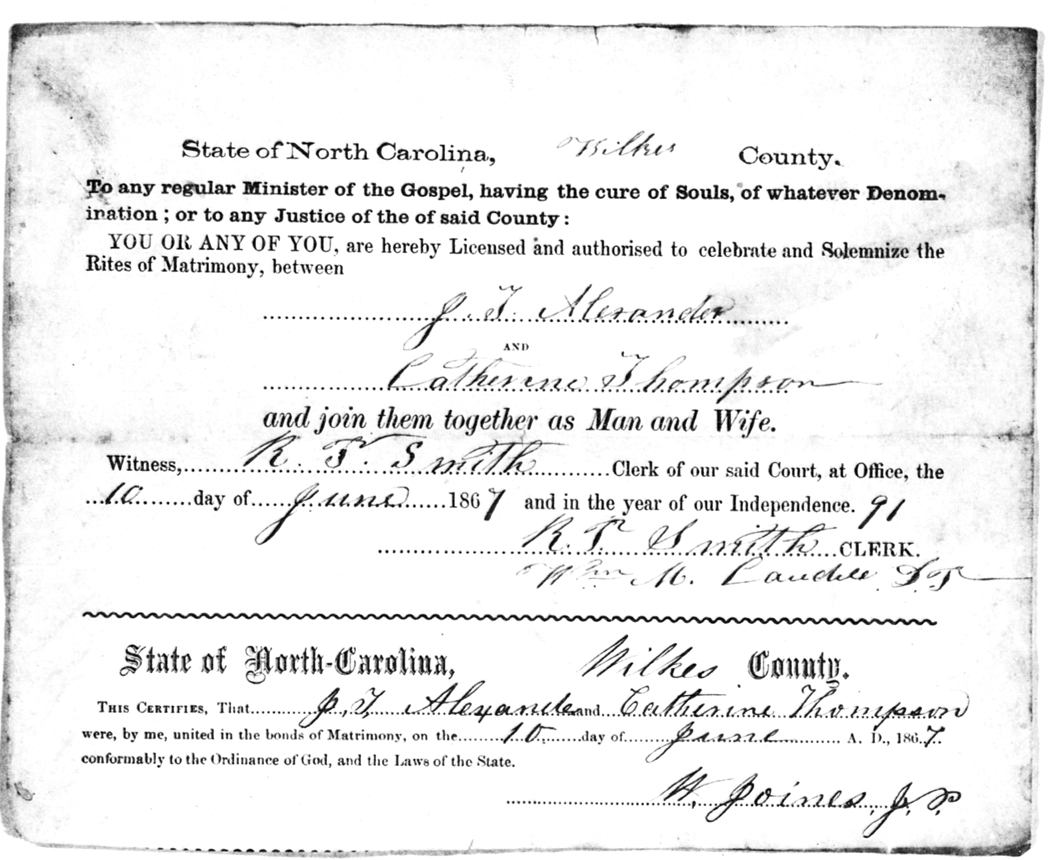 State of North Carolina, Wilkes County.
To any regular Minister of the Gospel, having the cure of Souls, of whatever Denom-
ination; or to any Justice of the of said County:
YOU OR ANY OF YOU, are hereby Licensed and authorised to celebrate and Solemnize the
Rites of Matrimony, between
J. T. Alexander
AND
Catherine Thompson
and join them together as Man and Wife.
Witness, R. F. Smith Clerk of our said Court, at Office, the
10 day of June 1867 and in the year of our Independence. 91
R. F. Smith CLERK.
Wm M. Caudill
State of North-Carolina, Wilkes County.
THIS CERTIFIES, That J. T. Alexander and Catherine Thompson
were, by me, united in the bonds of Matrimony, on the 10 day of June A. D., 1867.
conformably to the Ordinance of God, and the Laws of the State.
W. Joines, J. P.